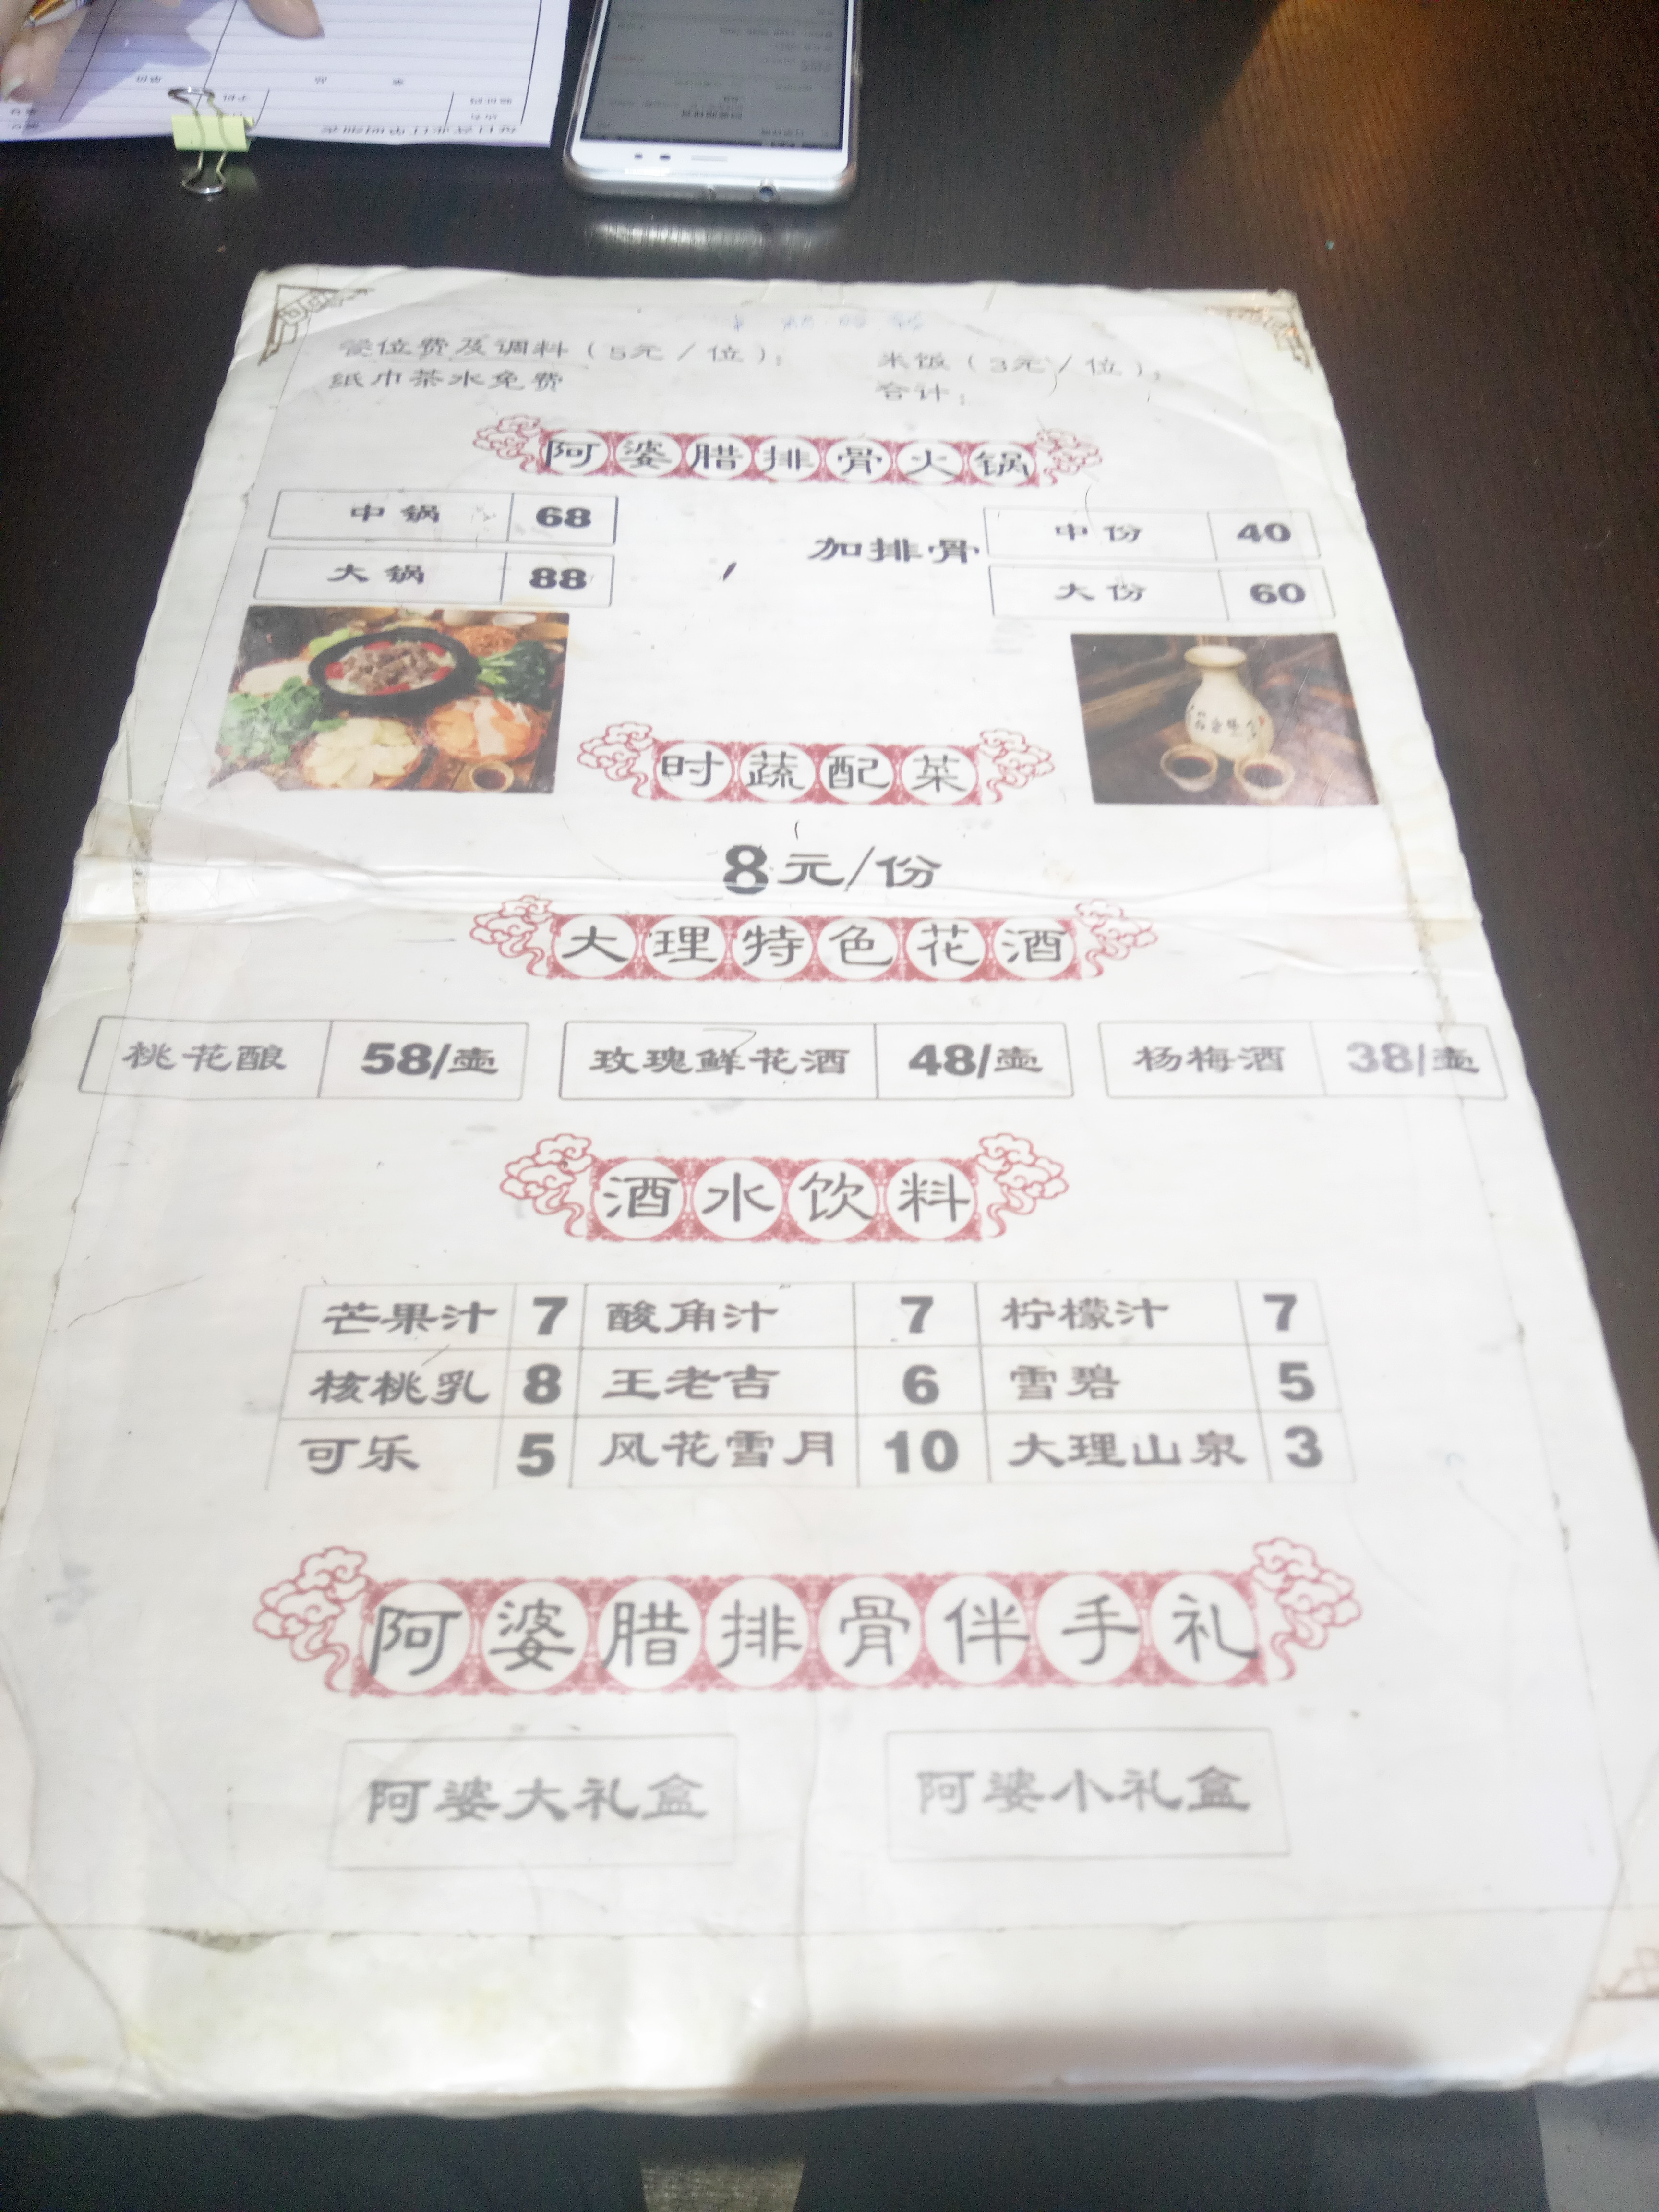 餐位费及调料（5元/位）； 米饭（3元/位）；
纸巾茶水免费 合计：
阿婆腊排骨火锅
中锅 68
大锅 88
加排骨
中份 40
大份 60
时蔬配菜
8元/份
大理特色花酒
桃花酿 58/壶 玫瑰鲜花酒 48/壶 杨梅酒 38/壶
酒水饮料
芒果汁 7 酸角汁 7 柠檬汁 7
核桃乳 8 王老吉 6 雪碧 5
可乐 5 风花雪月 10 大理山泉 3
阿婆腊排骨伴手礼
阿婆大礼盒 阿婆小礼盒